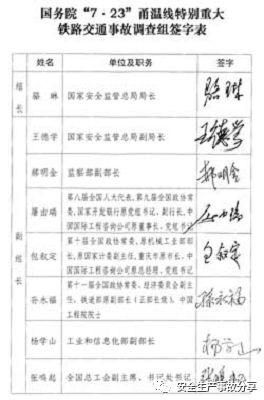 国务院“7·23”甬温线特别重大
铁路交通事故调查组签字表
姓名 单位及职务 签字
组长
骆琳 国家安全监管总局局长 骆琳
副组长
王德学 国家安全监管总局副局长 王德学
郝明金 监察部副部长 郝明金
屠由瑞
第八届全国人大代表,第九届全国政协常
委,国家开发银行原党组书记、副行长,中
国国际工程咨询公司原董事长、党组书记
包叙定
第十届全国政协常委,原机械工业部部
长,原国家计委副主任,重庆市原市长,中
国国际工程咨询公司原总经理、党组书记
包叙定
孙永福
第十一届全国政协常委、经济委员会副主
任,铁道部原副部长(正部长级),中国工
程院院士
孙永福
杨学山 工业和信息化部副部长
张鸣起 全国总工会副主席、书记处书记 张鸣起
安全生产事故分享